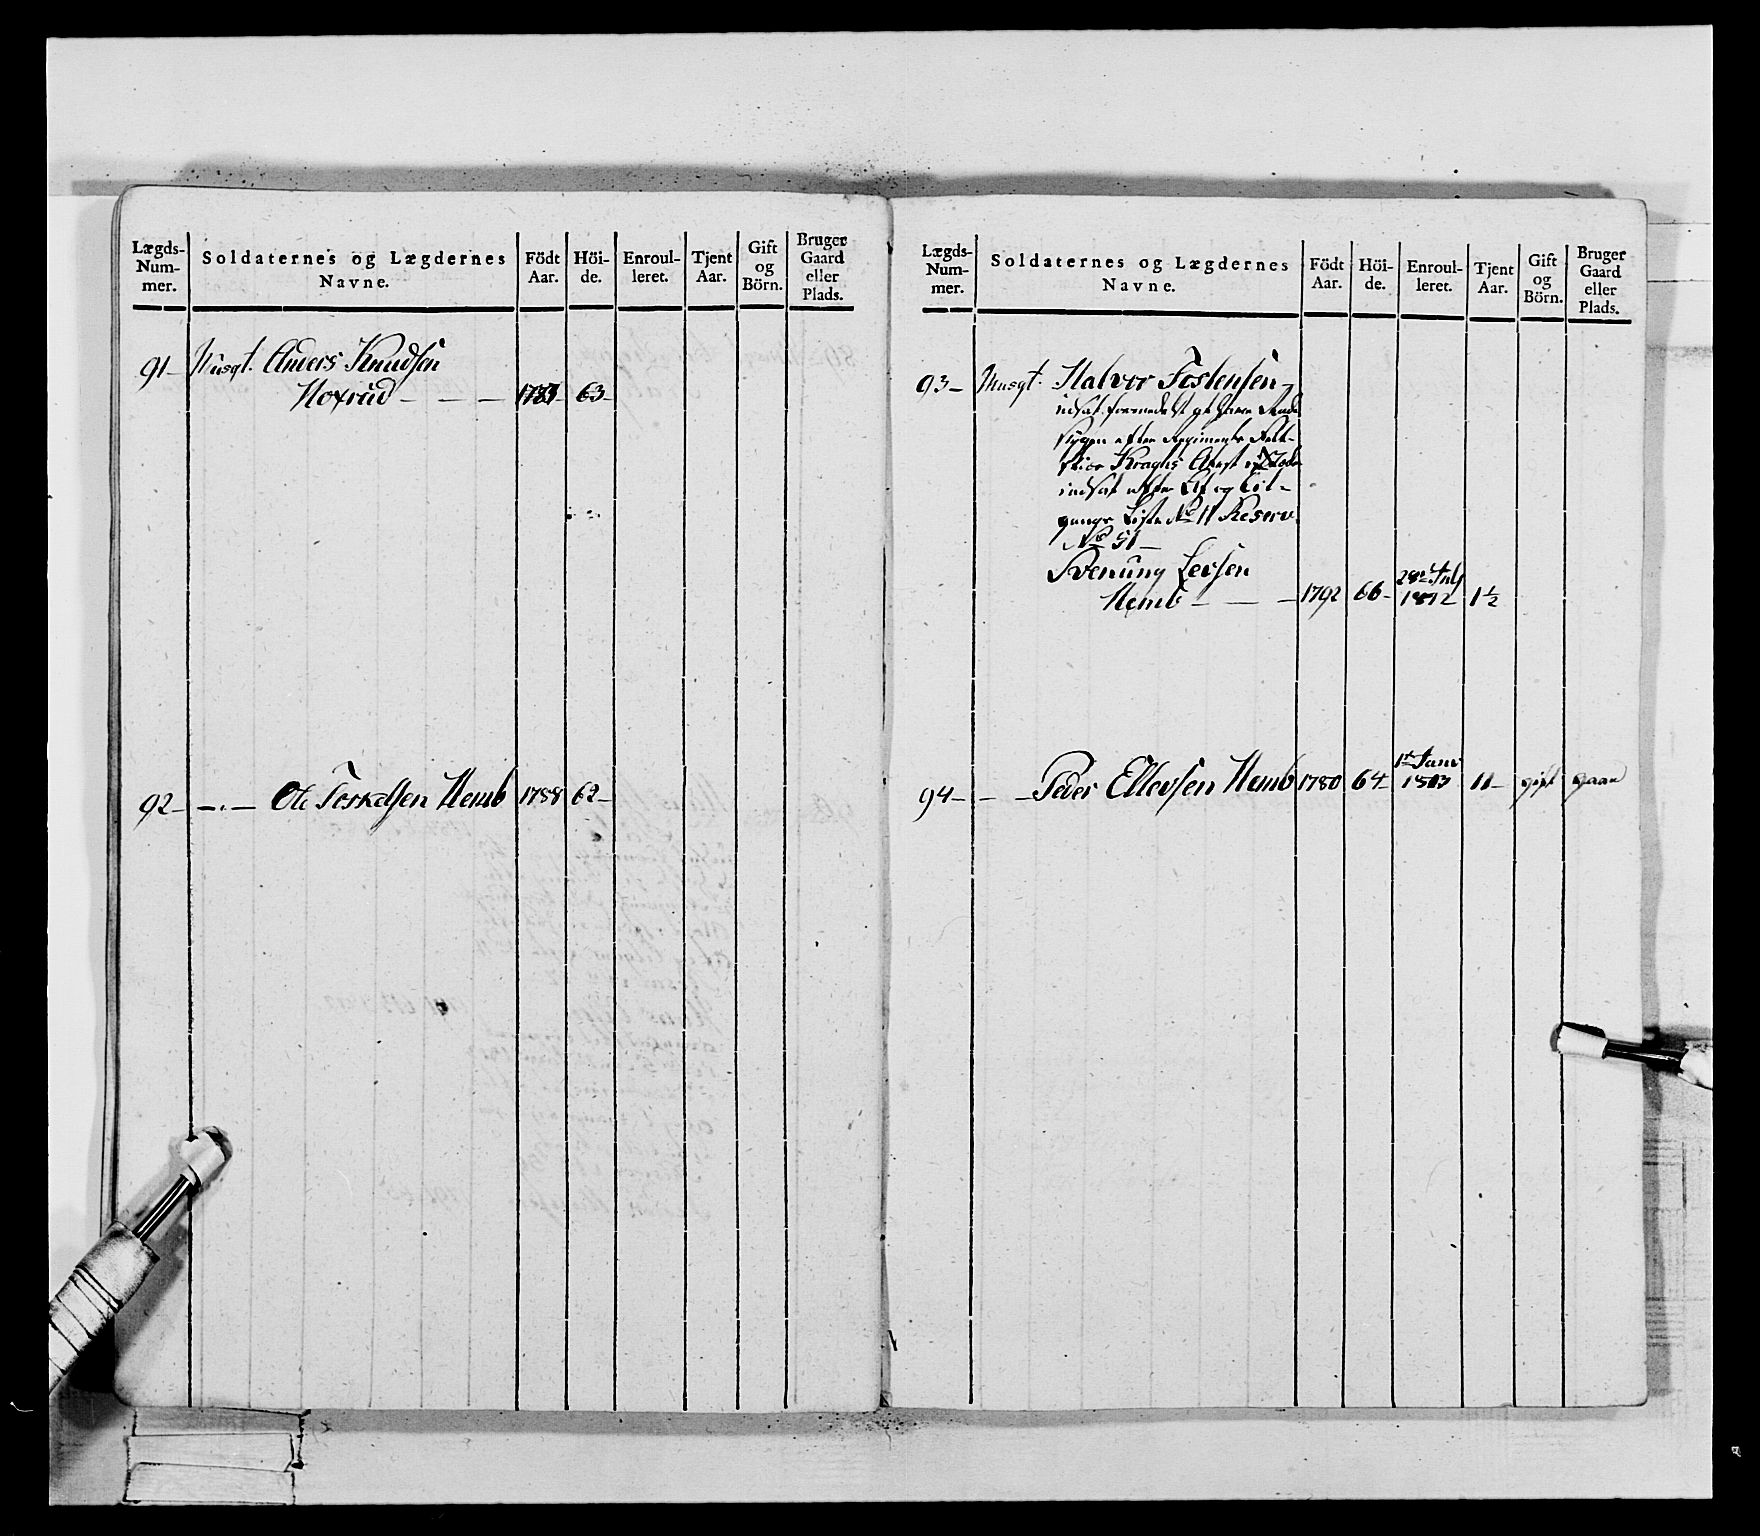 Lægds-
Num-
mer.
Soldaternes og Lægdernes
Navne.
Födt
Aar.
Höi-
de.
Enroul-
leret.
Tjent
Aar.
Gift
og
Börn.
Bruger
Gaard
eller
Plads.
91- Musqt. Anders Knudsen
Hoxrud - - - 63-
92- -.- Ole Torkelsen Hemb 1788 62-
Lægds-
Num-
mer.
Soldaternes og Lægdernes
Navne.
Födt
Aar.
Höi-
de.
Enroul-
leret.
Tjent
Aar.
Gift
og
Börn.
Bruger
Gaard
eller
Plads.
93- Musqt. Halvor Tostensen
efter Regiments Felt-
Kraghs Attest
indsat efter Af og Til-
gangs Liste No 11 Reserv
No 51-
Svenung Levsen
28de July
Hemb - - - 1792 66- 1812 1½
1te Janv
94- - - Peder Ellevsen Hemb 1780 64- 1803 11- gift gaar